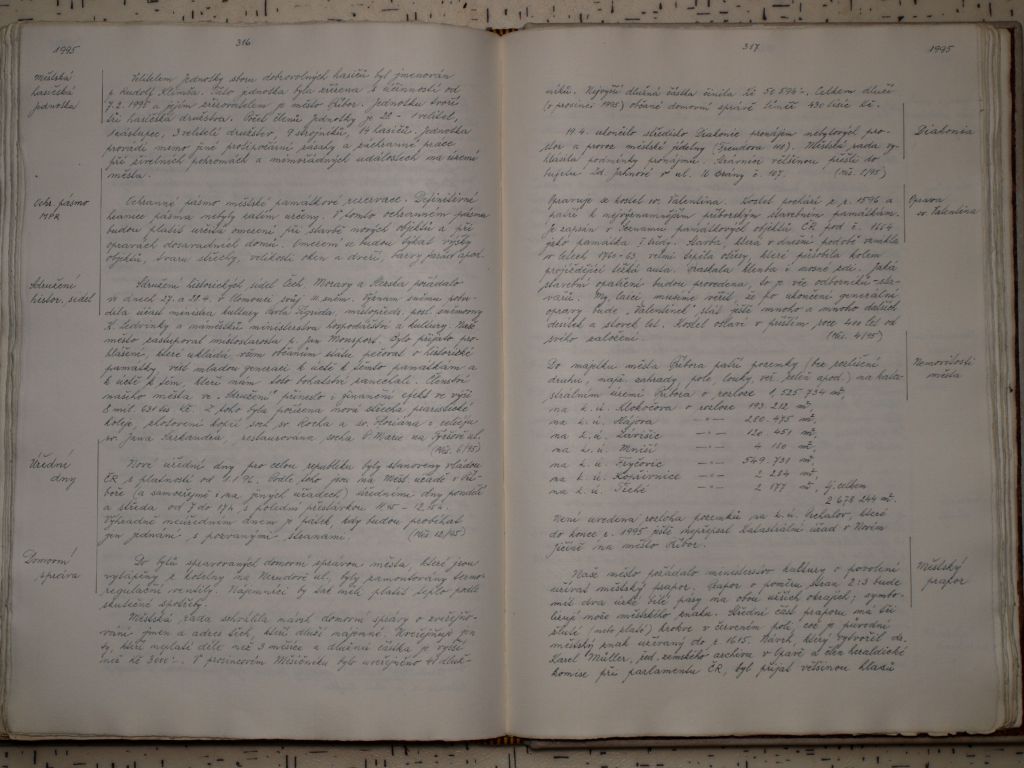 1995
316
Městská
hasičská
jednotka
Velitelem jednotky sboru dobrovolných hasičů byl jmenován
p. Rudolf Klimša. Tato jednotka byla zřízena s účinností od
7.2. 1995 a jejím zřizovatelem je město Příbor. Jednotku tvoří
tři hasičská družstva. Počet členů jednotky je 28 - 1 velitel,
zástupce, 3 velitelé družstev, 9 strojníků, 14 hasičů. Jednotka
provádí mimo jiné protipožární zásahy a záchranné práce
při živelných pohromách a mimořádných událostech na území
města.
Ochr. pásmo
MPR
Ochranné pásmo městské památkové rezervace. Definitivní
hranice pásma nebyly zatím určeny. V tomto ochranném pásmu
budou platit určitá omezení při stavbě nových objektů a při
opravách dosavadních domů. Omezení se budou týkat výšky
objektů, tvaru střechy, velikosti oken a dveří, barvy fasád apod.
Sdružení
histor. sídel
Sdružení historických sídel Čech, Moravy a Slezska pořádalo
ve dnech 27. a 28.4. v Olomouci svůj sněm. Význam sněmu
účast ministra kultury Pavla Tigrida, místopředs. posl. sněmovny
K. Ledvinky a náměstků ministerstva hospodářství a kultury. Naše
město zastupoval místostarosta p. Jan Monsport. Bylo přijato pro-
hlášení, které ukládá všem občanům státu pečovat o historické
památky, vést mladou generaci k úctě k těmto památkám a
k úctě k těm, kteří nám toto bohatství zanechali. Členství
našeho města ve "Sdružení" přineslo i finanční efekt ve výši
8 mil. 631 tis. Kč. Z toho byla pořízena nová střecha piaristické
koleje, zhotovení kopií soch sv. Rocha a sv. Floriána
sv. Jana Sarkandra, restaurována socha P. Marie na Tyršově ul.
(Měs. 6/95)
Úřední
dny
Nové úřední dny pro celou republiku byly stanoveny vládou
ČR s platností od 1.1. 92. Podle toho jsou na Měst. úřadě v Pří-
boře (a samozřejmě i na jiných úřadech) úředními dny pondělí
a středa od 7 do 17h. s polední přestávkou
Výhradně neúředním dnem je pátek, kdy budou probíhat
jen jednání s pozvanými stranami. (Měs. 12/95)
Domovní
správa
Do bytů spravovaných domovní správou města, které jsou
vytápěny z kotelny na Nerudově ul., byly namontovány termo-
regulační ventily. Nájemníci by tak měli platit teplo podle
skutečné spotřeby.
Městská rada schválila návrh domovní správy o zveřejňo-
vání jmen a adres těch, kteří dluží nájemné. Uveřejňují jen
ty, kteří neplatí déle než 3 měsíce a dlužná částka je vyšší
než Kč 3000.-. V prosincovém Měsíčníku bylo uveřejněno 41 dluž-
317
1995
níků. Nejvyšší dlužná částka činila Kč 50 594.-. Celkem dluží
(v prosinci 1995) občané domovní správě téměř 430 tisíc Kč.
Diakonie
19.4. ukončilo středisko Diakonie pronájem nebytových pro-
stor a provoz městské jídelny (Freudova 118). Městská rada vy-
hlásila podmínky pronájmu. Strávníci většinou přešli do
bufetu Zd. Jahnové v ul. U brány č. 107. (Měs. 5/95)
Oprava
sv. Valentina
Opravuje se kostel sv. Valentina. Kostel pochází z r. 1596 a
patří k nejvýznamnějším příborským stavebním památkám.
Je zapsán v Seznamu památkových objektů ČR pod č. 1554
jeho památka I. třídy. Stavba, která v dnešní podobě vznikla
v letech 1760-63, velmi trpěla otřesy, které působila kolem
projíždějící těžká auta. Praskala klenba i nosné zdi. Jaká
stavební opatření budou provedena, to je věc odborníků-sta-
vařů. My, laici, musíme věřit, že po ukončení generální
opravy bude "Valentínek" stát ještě mnoho a mnoho dalších
desítek a stovek let. Kostel oslaví v příštím roce 400 let od
svého založení. (Měs. 4/95)
Nemovitosti
města
Do majetku města Příbora patří pozemky (bez rozlišení
druhu, např. zahrady, pole, louky, vč. polží apod.) na kata-
strálním území Příbora o rozloze 1,525 734 m²,
na k. ú. Klokočova o rozloze 193 212 m²,
na k. ú. Hájova -"- 280 475 m²,
na k. ú. Závišic -"- 120 451 m²,
na k. ú. Mniší -"- 4 180 m²,
na k. ú. Fryčovic -"- 549 731 m²,
na k. ú. Kopřivnice -"- 2 284 m²,
na k. ú. Trebč -"- 2 177 m², celkem
2 678 244 m².
Není uvedena rozloha pozemků na k. ú. které
do konce r. 1995 ještě nepřepsal Katastrální úřad v Novém
Jičíně na město Příbor.
Městský
prapor
Naše město požádalo ministerstvo kultury o povolení
užívat městský prapor. Prapor o poměru stran 2:3 bude
mít dva úzké bílé pásy na obou užších okrajích; symbo-
lizují nože městského znaku. Střední část praporu má tři
žluté (nebo zlaté) krokve v červeném poli, což je původní
městský znak užívaný do r. 1615. Návrh, který vytvořil dr.
Karel Müller, řed. zemského archivu v Opavě a člen heraldické
komise při parlamentu ČR, byl přijat většinou hlasů